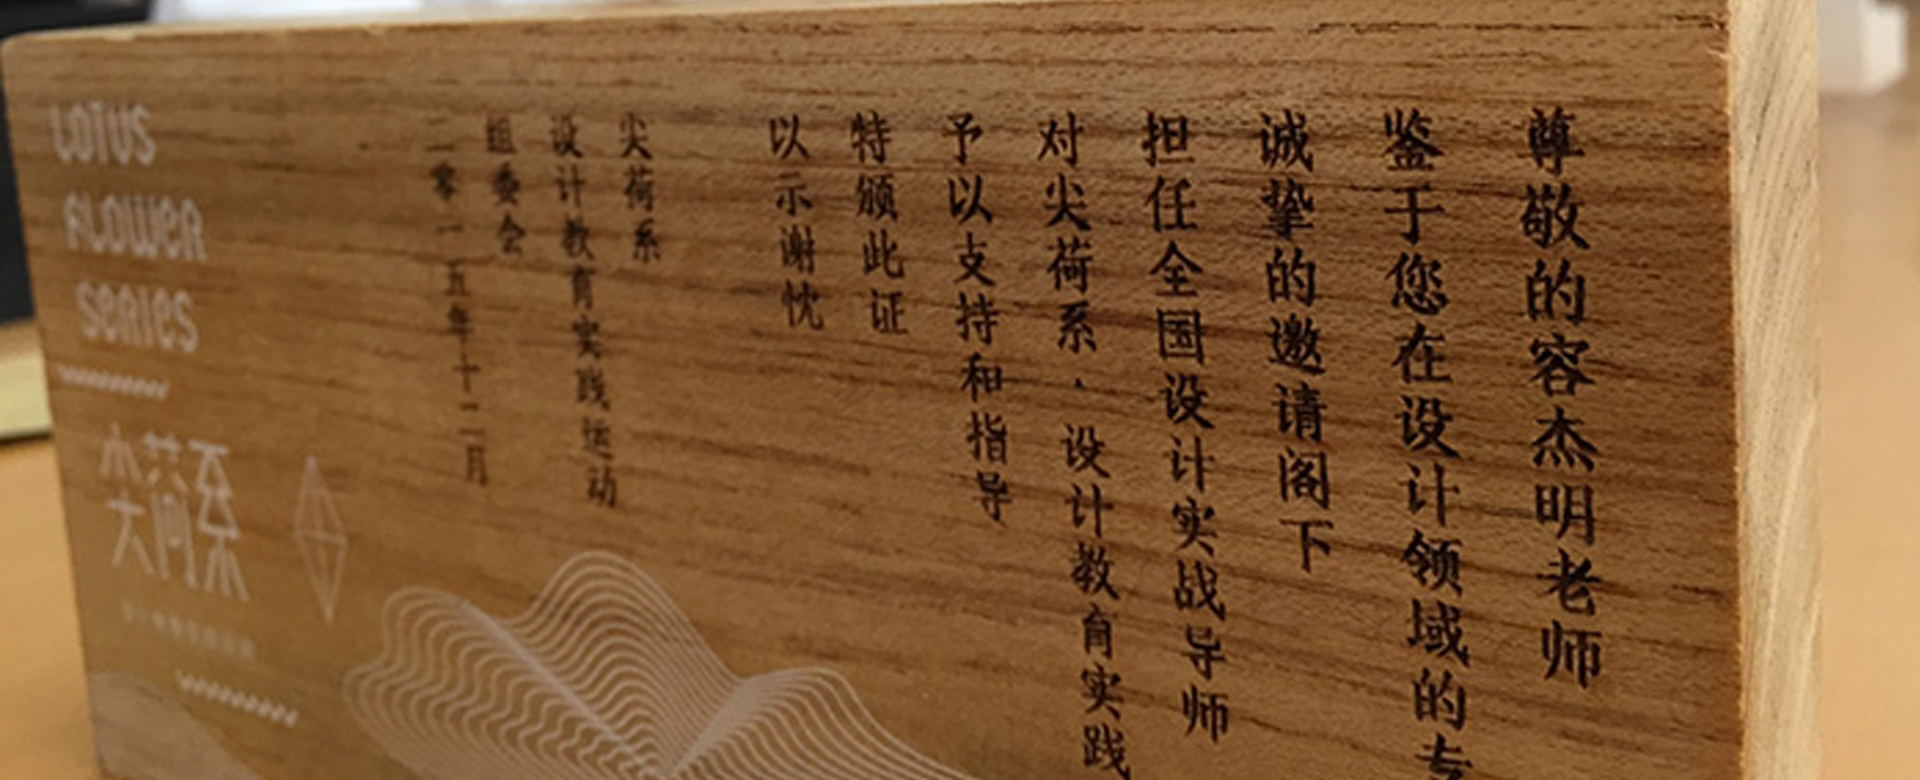 尊敬的容杰明老师
鉴于您在设计领域的专
诚挚的邀请阁下
担任全国设计实战导师
对尖荷系·设计教育实践
予以支持和指导
特颁此证
以示谢忱
尖荷系
设计教育实践运动
组委会
二零一五年十二月
LOTUS
FLOWER
SERIES
尖荷系